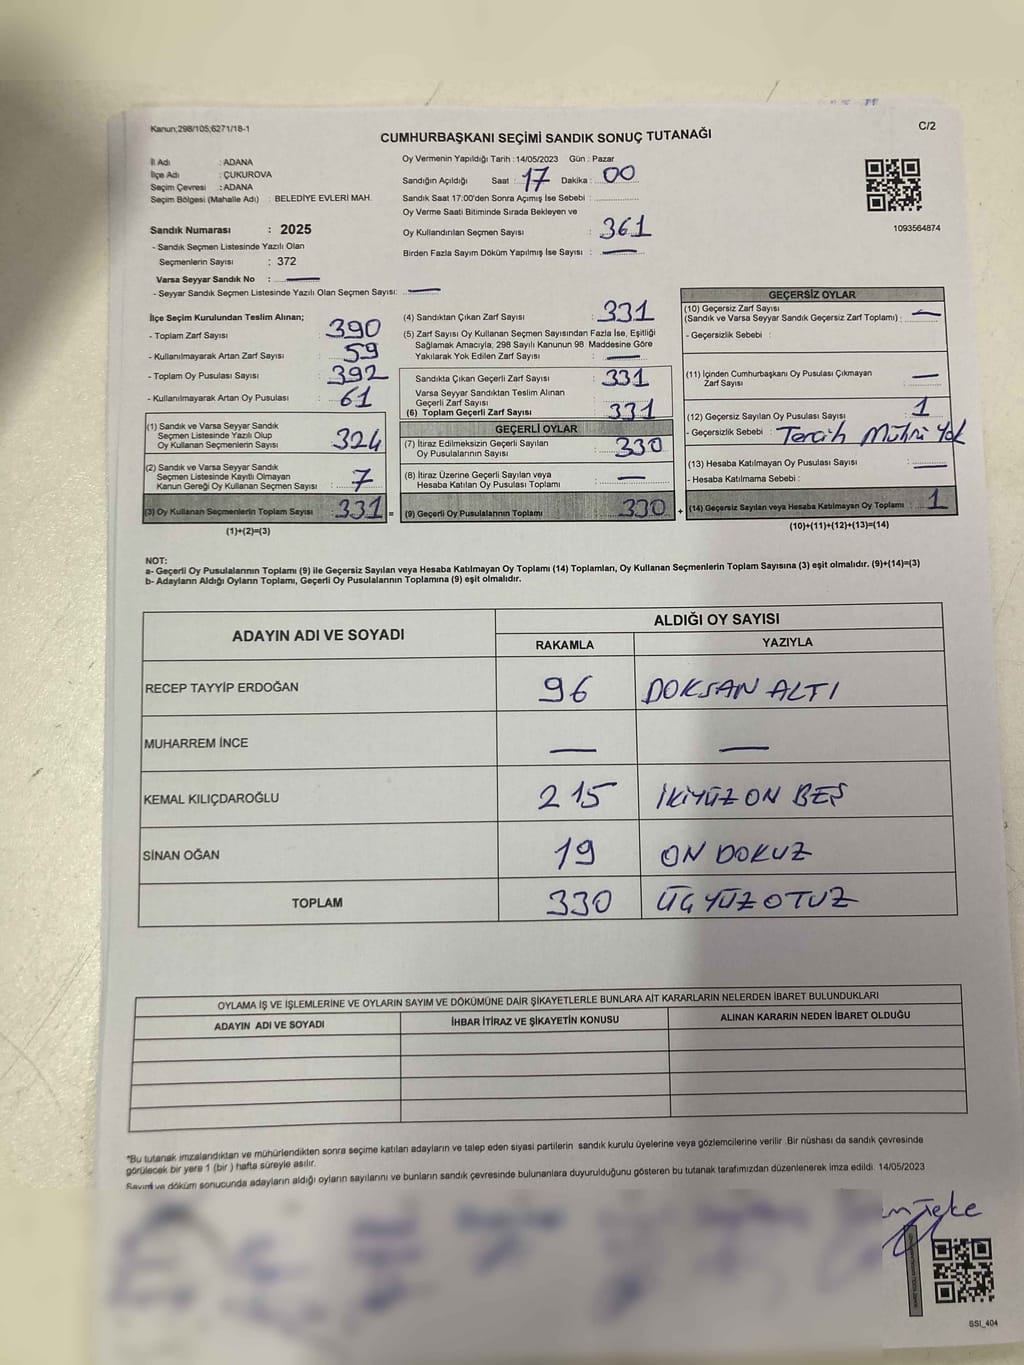 Kanun;298/105;6271/18-1
C/2
CUMHURBAŞKANI SEÇİMİ SANDIK SONUÇ TUTANAĞI
İl Adı : ADANA
İlçe Adı : ÇUKUROVA
Seçim Çevresi : ADANA
Seçim Bölgesi (Mahalle Adı) : BELEDİYE EVLERİ MAH.
Sandık Numarası : 2025
- Sandık Seçmen Listesinde Yazılı Olan
Seçmenlerin Sayısı : 372
Varsa Seyyar Sandık No : —
- Seyyar Sandık Seçmen Listesinde Yazılı Olan Seçmen Sayısı: —
Oy Vermenin Yapıldığı Tarih : 14/05/2023 Gün : Pazar
Sandığın Açıldığı Saat : 17 Dakika : 00
Sandık Saat 17:00'den Sonra Açımış İse Sebebi :
Oy Verme Saati Bitiminde Sırada Bekleyen ve
Oy Kullandırılan Seçmen Sayısı : 361
Birden Fazla Sayım Döküm Yapılmış İse Sayısı : —
1093564874
İlçe Seçim Kurulundan Teslim Alınan;
- Toplam Zarf Sayısı : 390
- Kullanılmayarak Artan Zarf Sayısı : 59
- Toplam Oy Pusulası Sayısı : 392
- Kullanılmayarak Artan Oy Pusulası : 61
(1) Sandık ve Varsa Seyyar Sandık
Seçmen Listesinde Yazılı Olup
Oy Kullanan Seçmenlerin Sayısı : 324
(2) Sandık ve Varsa Seyyar Sandık
Seçmen Listesinde Kayıtlı Olmayan
Kanun Gereği Oy Kullanan Seçmen Sayısı : 7
(3) Oy Kullanan Seçmenlerin Toplam Sayısı : 331 =
(1)+(2)=(3)
(4) Sandıktan Çıkan Zarf Sayısı : 331
(5) Zarf Sayısı Oy Kullanan Seçmen Sayısından Fazla İse, Eşitliği
Sağlamak Amacıyla, 298 Sayılı Kanunun 98 Maddesine Göre
Yakılarak Yok Edilen Zarf Sayısı : —
Sandıkta Çıkan Geçerli Zarf Sayısı : 331
Varsa Seyyar Sandıktan Teslim Alınan
Geçerli Zarf Sayısı :
(6) Toplam Geçerli Zarf Sayısı : 331
GEÇERLİ OYLAR
(7) İtiraz Edilmeksizin Geçerli Sayılan
Oy Pusulasının Sayısı : 330
(8) İtiraz Üzerine Geçerli Sayılan veya
Hesaba Katılan Oy Pusulası Toplamı : —
(9) Geçerli Oy Pusulalarının Toplamı : 330 +
GEÇERSİZ OYLAR
(10) Geçersiz Zarf Sayısı
(Sandık ve Varsa Seyyar Sandık Geçersiz Zarf Toplamı) : —
- Geçersizlik Sebebi :
(11) İçinden Cumhurbaşkanı Oy Pusulası Çıkmayan
Zarf Sayısı : —
(12) Geçersiz Sayılan Oy Pusulası Sayısı : 1
- Geçersizlik Sebebi : Tercih Mührü Yok
(13) Hesaba Katılmayan Oy Pusulası Sayısı : —
- Hesaba Katılmama Sebebi :
(14) Geçersiz Sayılan veya Hesaba Katılmayan Oy Toplamı : 1
(10)+(11)+(12)+(13)=(14)
NOT:
a- Geçerli Oy Pusulalarının Toplamı (9) ile Geçersiz Sayılan veya Hesaba Katılmayan Oy Toplamı (14) Toplamları, Oy Kullanan Seçmenlerin Toplam Sayısına (3) eşit olmalıdır. (9)+(14)=(3)
b- Adayların Aldığı Oyların Toplamı, Geçerli Oy Pusulalarının Toplamına (9) eşit olmalıdır.
ADAYIN ADI VE SOYADI
ALDIĞI OY SAYISI
RAKAMLA YAZIYLA
RECEP TAYYİP ERDOĞAN 96 DOKSAN ALTI
MUHARREM İNCE — —
KEMAL KILIÇDAROĞLU 215 İKİYÜZ ON BEŞ
SİNAN OĞAN 19 ON DOKUZ
TOPLAM 330 ÜÇYÜZ OTUZ
OYLAMA İŞ VE İŞLEMLERİNE VE OYLARIN SAYIM VE DÖKÜMÜNE DAİR ŞİKAYETLERLE BUNLARA AİT KARARLARIN NELERDEN İBARET BULUNDUKLARI
ADAYIN ADI VE SOYADI İHBAR İTİRAZ VE ŞİKAYETİN KONUSU ALINAN KARARIN NEDEN İBARET OLDUĞU
*Bu tutanak imzalandıktan ve mühürlendikten sonra seçime katılan adayların ve talep eden siyasi partilerin sandık kurulu üyelerine veya gözlemcilerine verilir .Bir nüshası da sandık çevresinde
görülecek bir yere 1 (bir ) hafta süreyle asılır.
Sayım ve döküm sonucunda adayların aldığı oyların sayılarını ve bunların sandık çevresinde bulunanlara duyurulduğunu gösteren bu tutanak tarafımızdan düzenlenerek imza edildi. 14/05/2023
SSI_404